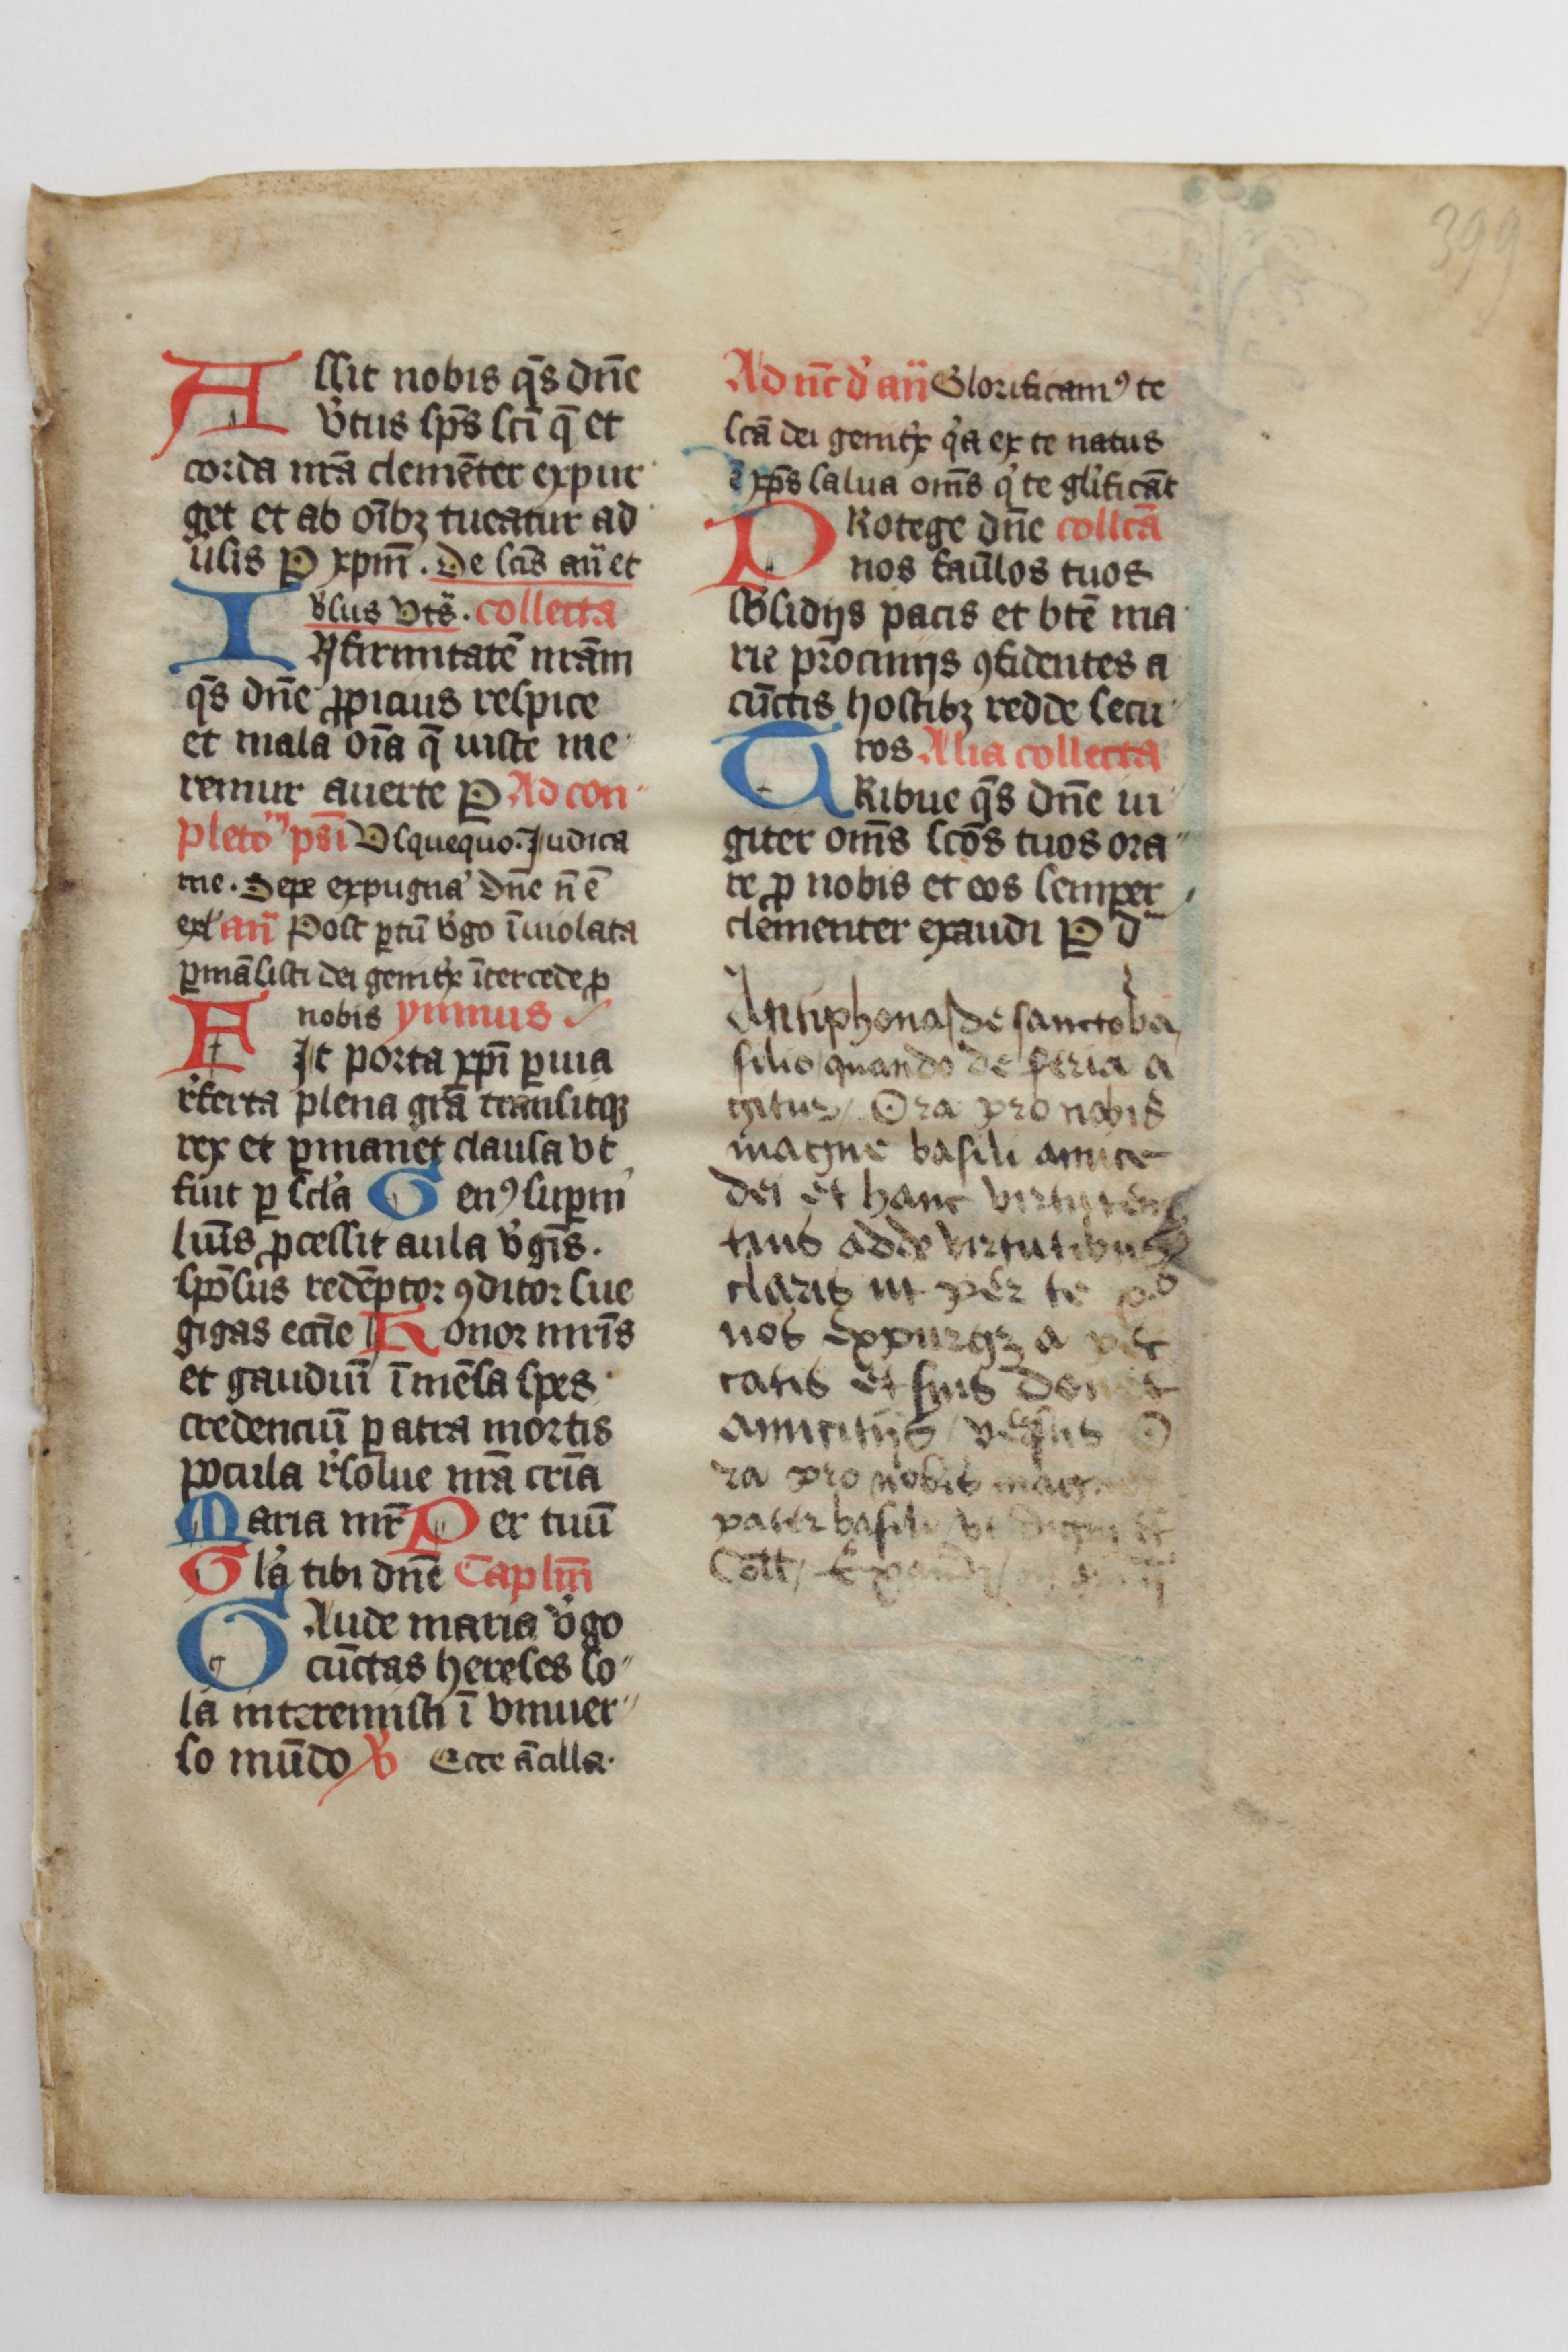 Assit nobis q̄s dn̄e
v̓tus sp̄s sc̄i q̄ et
corda nr̄a clemēter expur
get et ab oībꝫ tueatur ad
ūsis P xp̄m̄. De sc̄īs an̄ et
v̓sus vts̄. collecta
INfirmitatē nr̄am
q̄s dn̄e ꝓpicius respice
et mala oīa q̄ iuste me
remur auerte P Ad con
pleto psī Vsquequo. Judica
me. Sepe expugna dn̄e n̄ ē
exl̓ an̄ Post ꝑtū v̓go īuiolata
ꝑmāsisti dei genitͥx ītercede ꝓ
nobis ymnus
FIt porta xp̄i ꝑuia
r̓ferta plena gr̄a trāsitqꝫ
rex et ꝑmanet clausa vt
fuit ꝑ scl̓a Genꝰ suꝑni
luīs ꝓcessit aula v̓gīs.
spōsus redēptor ꝯditor sue
gigas ecc̄ie Honor mr̄is
et gaudiū īmēsa spes
credenciū ꝑ atra mortis
pocula r̓solue nr̄a cr̄ia
Maria mr̄ Per tuū
Gl̓a tibi dn̄e Caplm̄
GAude maria v̓go
cūctas hereses so
la interemisti ī vniuer
so mūdo ℣ Ecce ācilla.
Ad nc̄ d̓ an̄ Glorificamꝰ te
sc̄a dei genitͥx qͥa ex te natus
ē xp̄s salua om̄s qͥ te gl̓ificāt
PRotege dn̄e collc̄ā
nos faūlos tuos
sb̓sidijs pacis et bt̄e ma
rie pr̄ocinijs ꝯfidentes a
cūctis hostibꝫ redde secu
ros Alia collecta
TRibue q̄s dn̄e iu
giter om̄s sc̄ōs tuos ora
re ꝓ nobis et eos semper
clementer exaudi P d
Antiphona/de sancto ba
silio/quando de feria a
gitur/ Ora pro nobis
magne basili amice
dei et hanc virtutem
tuis adde virtutibus
claris ut per te
nos expurgꝫ a pec
catis et suis donet
amicitijs/versus O
ra pro nobis magne
pater basili
Coll/
399